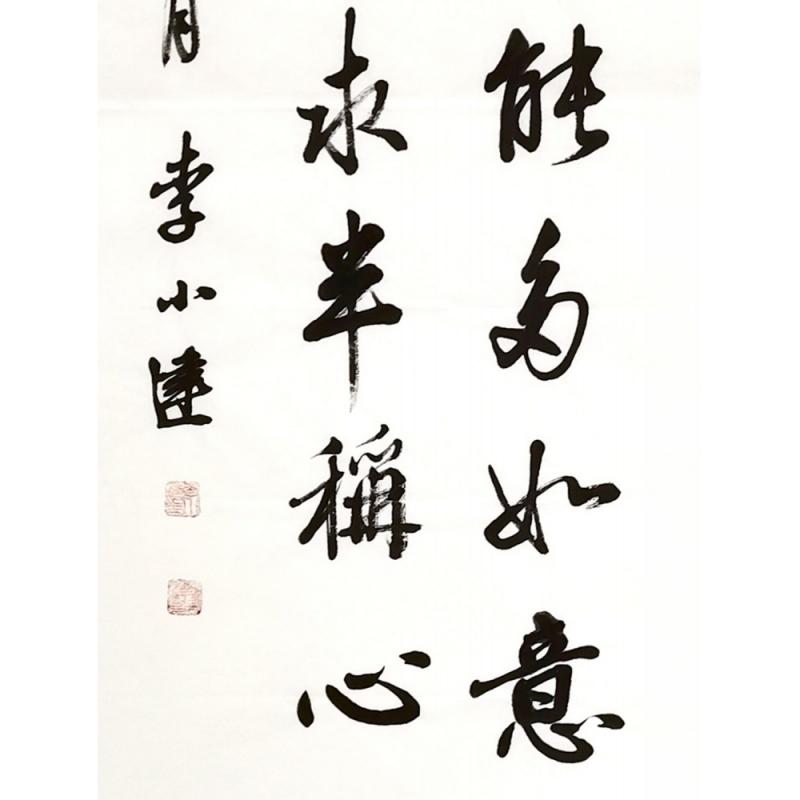 能多如意
求半稱心
月 李小